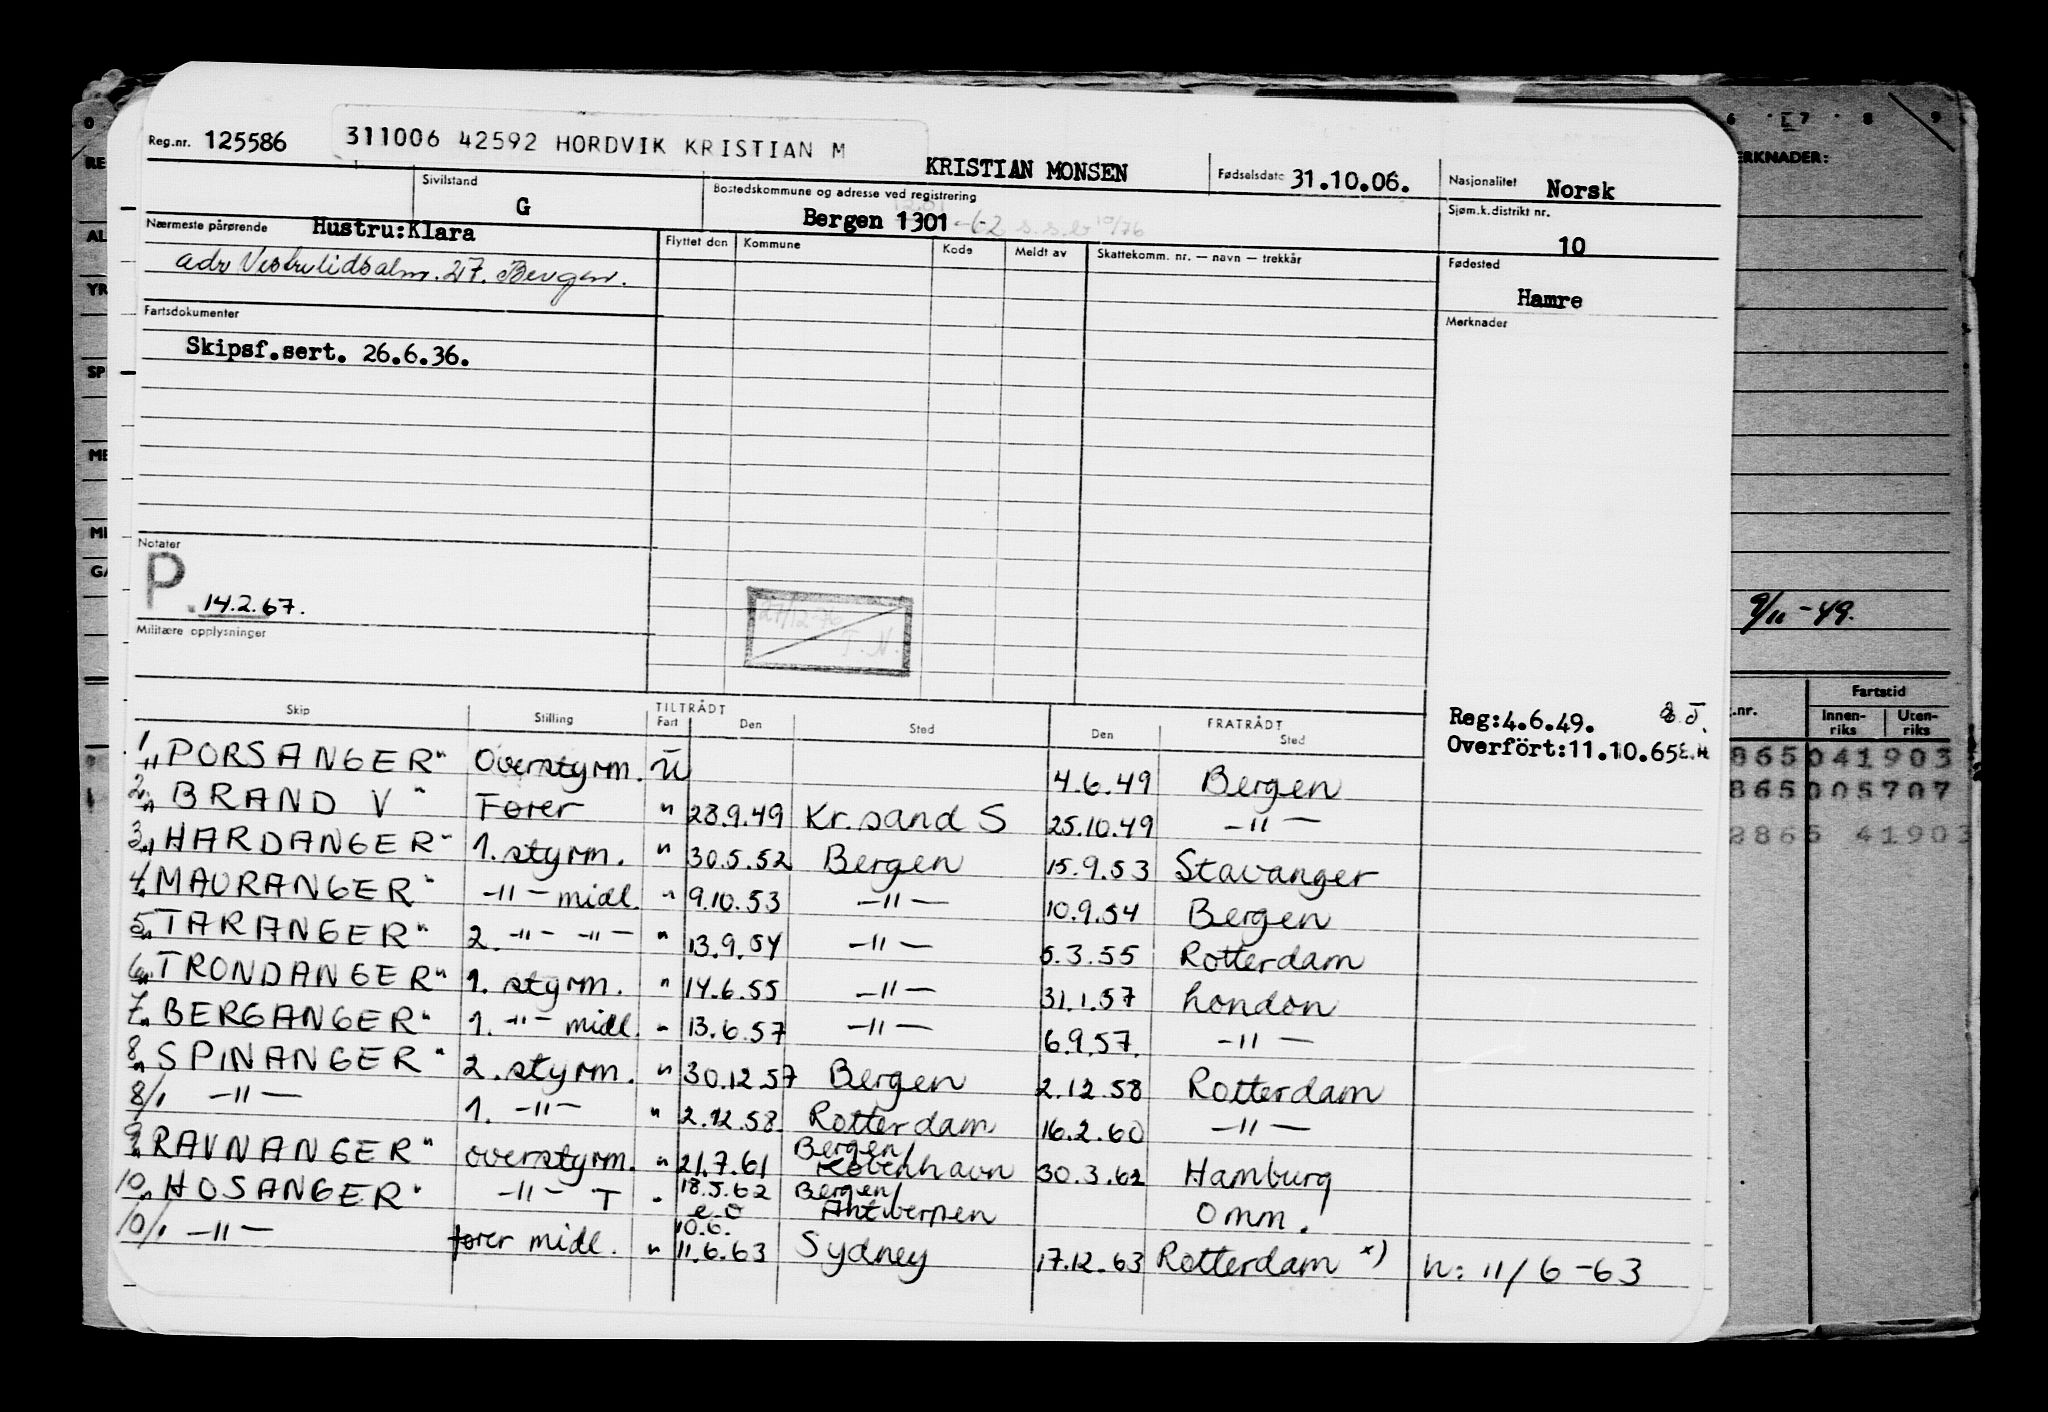 Reg.nr. 125586 311006 42592 HORDVIK KRISTIAN M KRISTIAN MONSEN Fødselsdato 31.10.06. Nasjonalitet Norsk
Sivilstand G Bostedskommune og adresse ved registrering Bergen 1301 -62 Sjøm.k.distrikt nr. 10
Nærmeste pårørende Hustru:Klara
Flyttet den Kommune Kode Meldt av Skattekomm. nr. — navn — trekkår
Fødested Hamre
Bergen.
Fartsdokumenter Merknader
Skipsf.sert. 26.6.36.
Notater
P. 14.2.67.
27/12-76 T.N.
Militære opplysninger
9/11-49.
Reg:4.6.49.
Overfört:11.10.65 E.H
Skip Stilling TILTRÅDT Fart Den Sted FRATRÅDT Den Sted
1 „PORSANGER" Overstyrm. U 4.6.49 Bergen
2. „BRAND V" Fører " 28.9.49 Kr.sand S 25.10.49 —"—
3. „HARDANGER" 1. styrm. " 30.5.52 Bergen 15.9.53 Stavanger
4. „MAURANGER" —"— midl. " 9.10.53 —"— 10.9.54 Bergen
5. „TARANGER" 2. —"— —"— " 13.9.54 —"— 5.3.55 Rotterdam
6. „TRONDANGER" 1. styrm. " 14.6.55 —"— 31.1.57 London
7. „BERGANGER" 1. —"— midl. " 13.6.57 —"— 6.9.57. —"—
8. „SPINANGER" 2. styrm. " 30.12.57 Bergen 2.12.58 Rotterdam
8/1 —"— 1. —"— " 2.12.58. Rotterdam 16.2.60 —"—
9. „RAVNANGER" overstyrm. " 21.7.61 Bergen/København 30.3.62 Hamburg
10. „HOSANGER" —"— T " 18.5.62 Bergen/Antwerpen Omm.
10/1 —"— fører midl. " 10.6. 11.6.63 Sydney 17.12.63 Rotterdam x) n: 11/6-63
6 7 8 9
ERKNADER:
Fartstid
.nr. Innen-riks Uten-riks
865 041903
865 005707
8865 41903